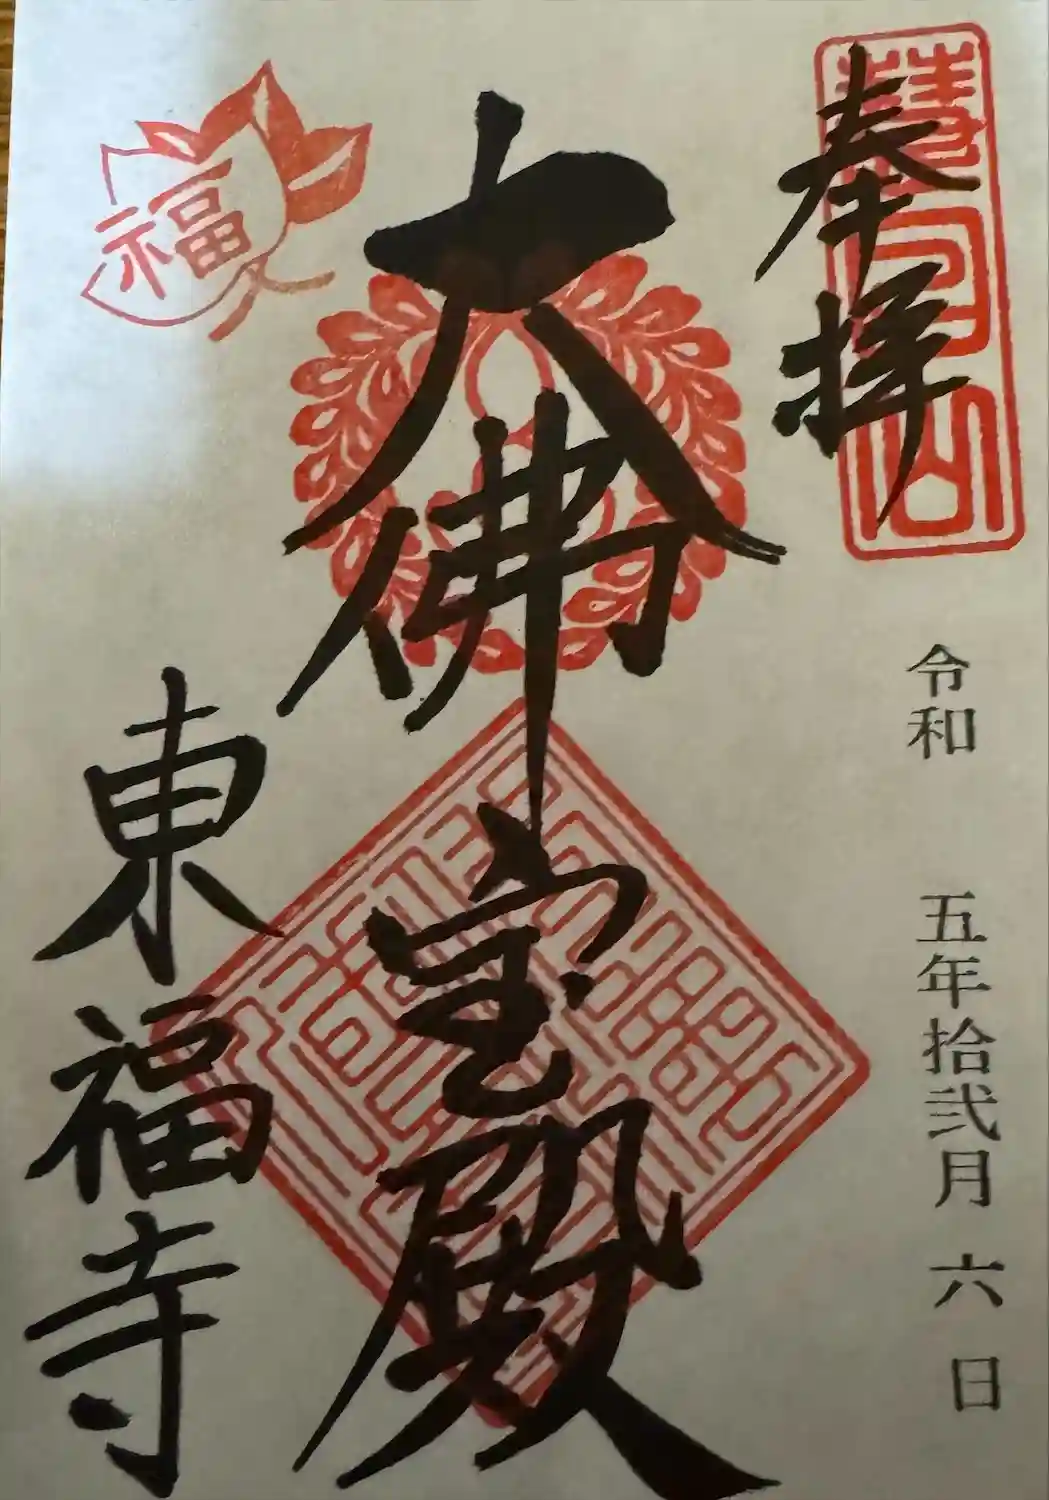 奉拝
慧日山
令和 五年拾弐月 六日
大佛宝殿
福
東福寺